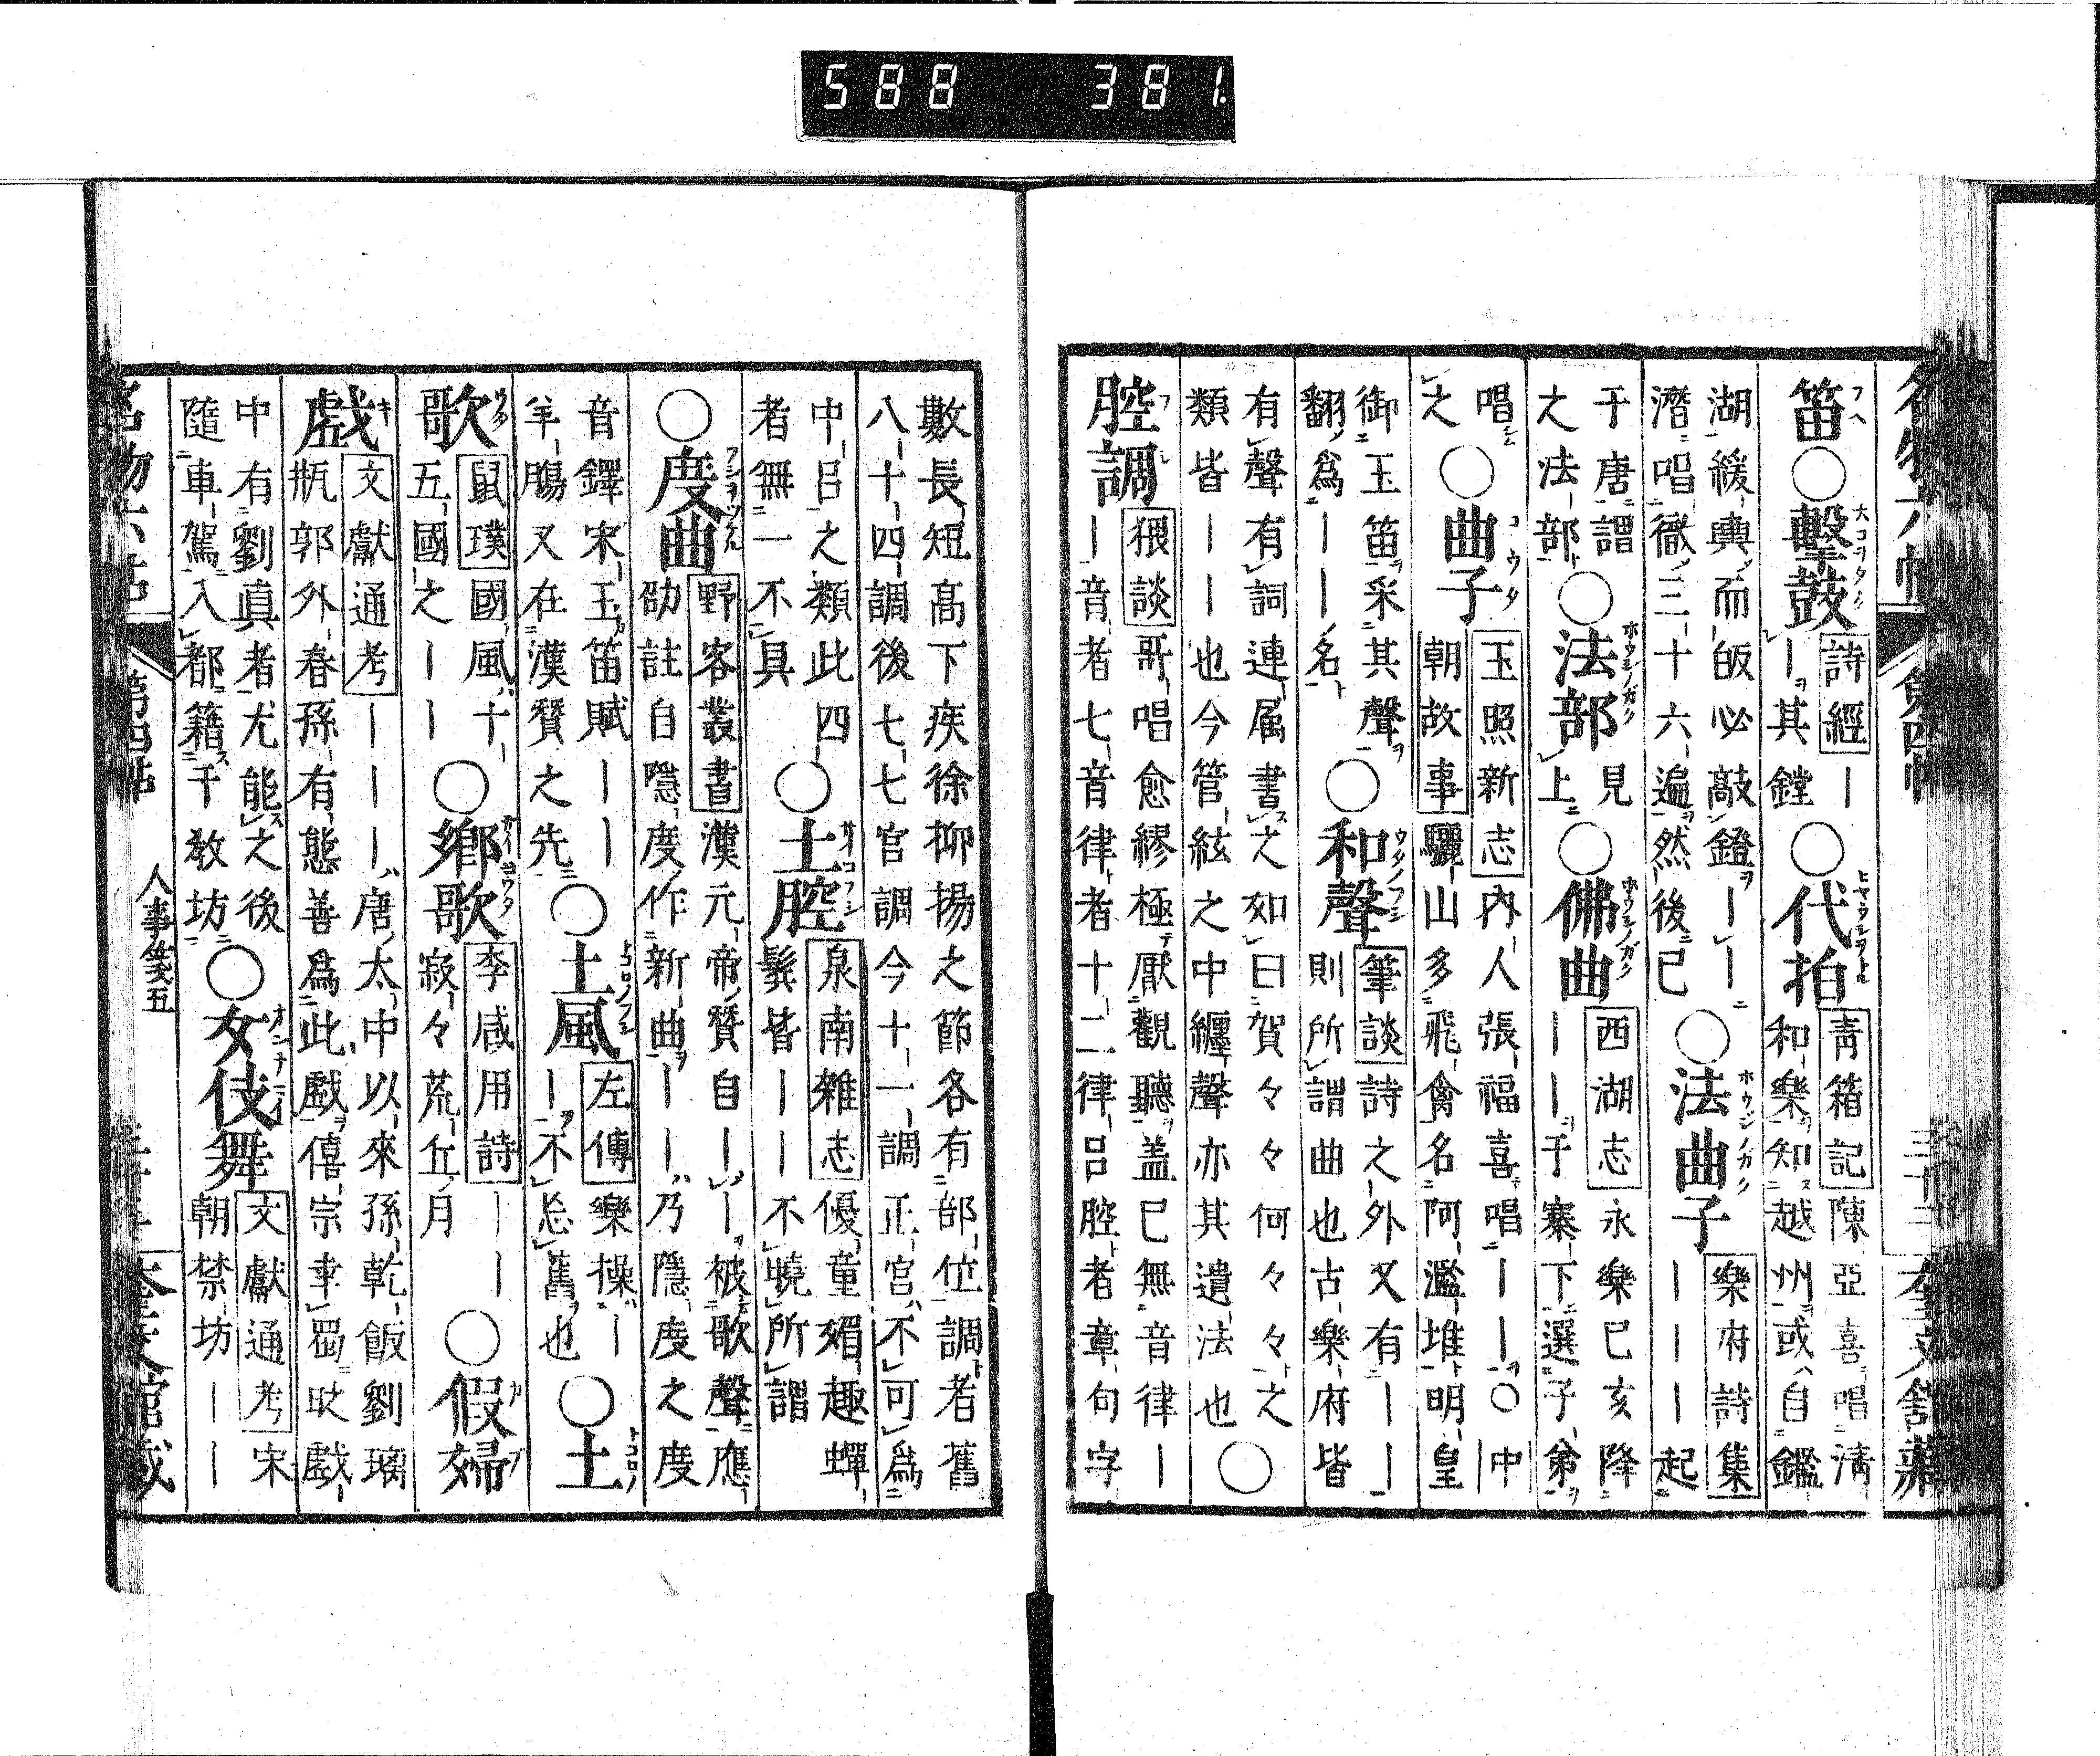 588 381.
笛○擊鼓 詩經｜
｜其鏜○代拍 青箱記 陳亞喜唱淸
和樂知越州或自鑑
湖緩輿而皈必敲鐙｜｜
潛唱徹三十六遍然後已○法曲子 樂府詩集
｜｜｜起
于唐謂
之法部○法部 見
上○佛曲 西湖志 永樂已亥降
｜｜于寨下選子弟
唱
之○曲子 玉照新志 內人張福喜唱｜｜○中
朝故事 驪山多飛禽名阿濫堆明皇
御玉笛采其聲
翻爲｜｜名○和聲 筆談 詩之外又有｜｜
則所謂曲也古樂府皆
有聲有詞連属書之如曰賀々々何々々之
類皆｜｜也今管絃之中纏聲亦其遺法也○
腔調 猥談 哥唱愈繆極厭觀聽盖已無音律｜
｜音者七音律者十二律吕腔者章句字
數長短髙下疾徐抑揚之節各有部位調者舊
八十四調後七七官調今十一調正宮不可爲
中吕之類此四
者無一不具○土腔 泉南雜志 優童媚趣蟬
鬂皆｜｜不曉所謂
○度曲 野客叢書 漢元帝贊自｜｜被歌聲應
劭註自隱度作新曲｜｜乃隱度之度
音鐸宋玉笛賦｜｜
羊腸又在漢贊之先○土風 左傳 樂操｜
｜不忘舊也○土
歌 鼠璞 國風十
五國之｜｜○鄉歌 李咸用詩｜｜
寂々荒丘月○假婦
戲 文獻通考｜｜｜唐太中以來孫乾飯劉璃
瓶郭外春孫有態善爲此戲僖宗幸蜀時戲
中有劉真者尤能之後
隨車駕入都籍于敎坊○女伎舞 文獻通考 宋
朝禁坊｜｜
人事箋五